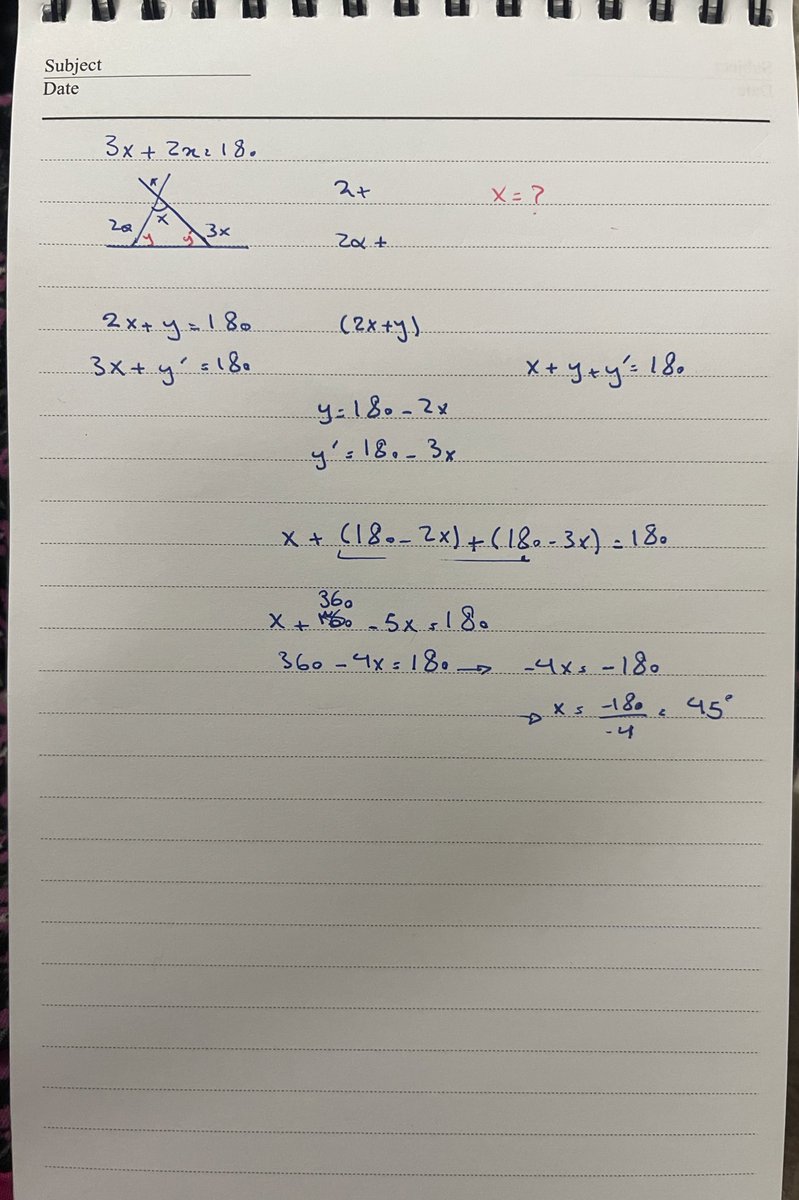 Subject
Date
3x + 2x = 180
x
2x x 3x
y y'
2+ x = ?
2x +
2x + y = 180 (2x+y)
3x + y' = 180 x + y + y' = 180
y = 180 - 2x
y' = 180 - 3x
x + (180 - 2x) + (180 - 3x) = 180
360
x + - 5x = 180
360 - 4x = 180 → -4x = -180
→ x = -180/-4 = 45°